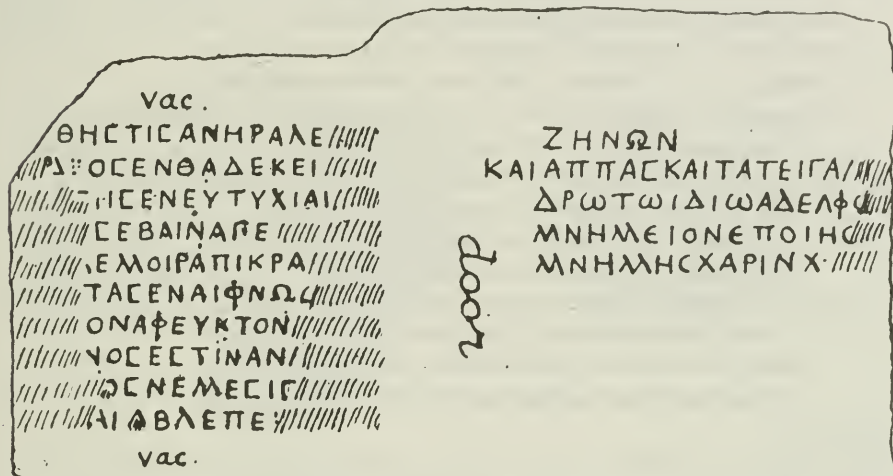 vac.
ΘΗСΤΙСΑΝΗΡΑΛΕ
ΟСΕΝΘΑΔΕΚΕΙ
ΙСΕΝΕΥΤΥΧΙΑΙ
СΕΒΑΙΝΑΠΕ
ΕΜΟΙΡΑΠΙΚΡΑ
ΤΑСΕΝΑΙΦΝΩС
ΟΝΑΦΕΥΚΤΟΝ
ΝΟСΕСΤΙΝΑΝΙ
ΟСΝΕΜΕСΙС
ΑΙΩΒΛΕΠΕ
vac.
door
ΖΗΝΩΝ
ΚΑΙΑΠΠΑСΚΑΙΤΑΤΕΙΓΑ
ΔΡωΤωΙΔΙωΑΔΕΛΦω
ΜΝΗΜΕΙΟΝΕΠΟΙΗС
ΜΝΗΜΗСΧΑΡΙΝΧ